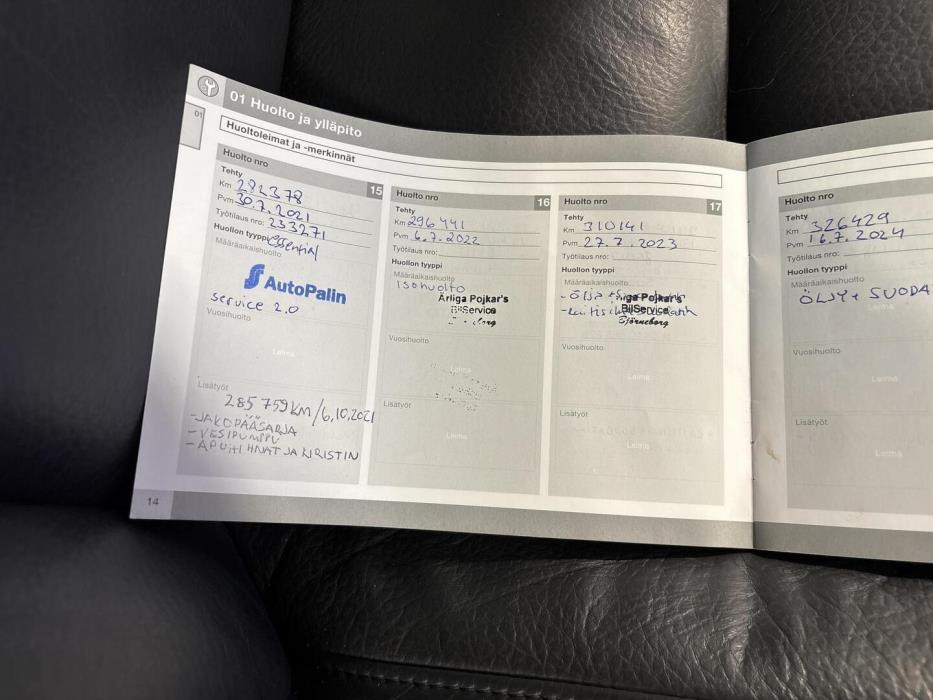 01 Huolto ja ylläpito
01
Huoltoleimat ja -merkinnät
Huolto nro
15
Tehty
Km 282378
Pvm 30.7.2021
Työtilaus nro: 233271
Huollon tyyppi essential
Määräaikaishuolto
AutoPalin
service 2.0
Vuosihuolto
Leima
Lisätyöt
285759KM/6.10.2021
-JAKOPÄÄSARJA
-VESIPUMPPU
-APUHIHNAT JA KIRISTIN
14
Huolto nro
16
Tehty
Km 296441
Pvm 6.7.2022
Työtilaus nro:
Huollon tyyppi
Määräaikaishuolto
Isohuolto
Ärliga Pojkar's
BilService
Vuosihuolto
Leima
Lisätyöt
Leima
Huolto nro
17
Tehty
Km 310141
Pvm 27.7.2023
Työtilaus nro:
Huollon tyyppi
Määräaikaishuolto
Pojkar's
BilService
Björneborg
Vuosihuolto
Leima
Lisätyöt
Leima
Huolto nro
Tehty
Km 326429
Pvm 16.7.2024
Työtilaus nro:
Huollon tyyppi
Määräaikaishuolto
ÖLJY + SUODA
Vuosihuolto
Leima
Lisätyöt
Leima